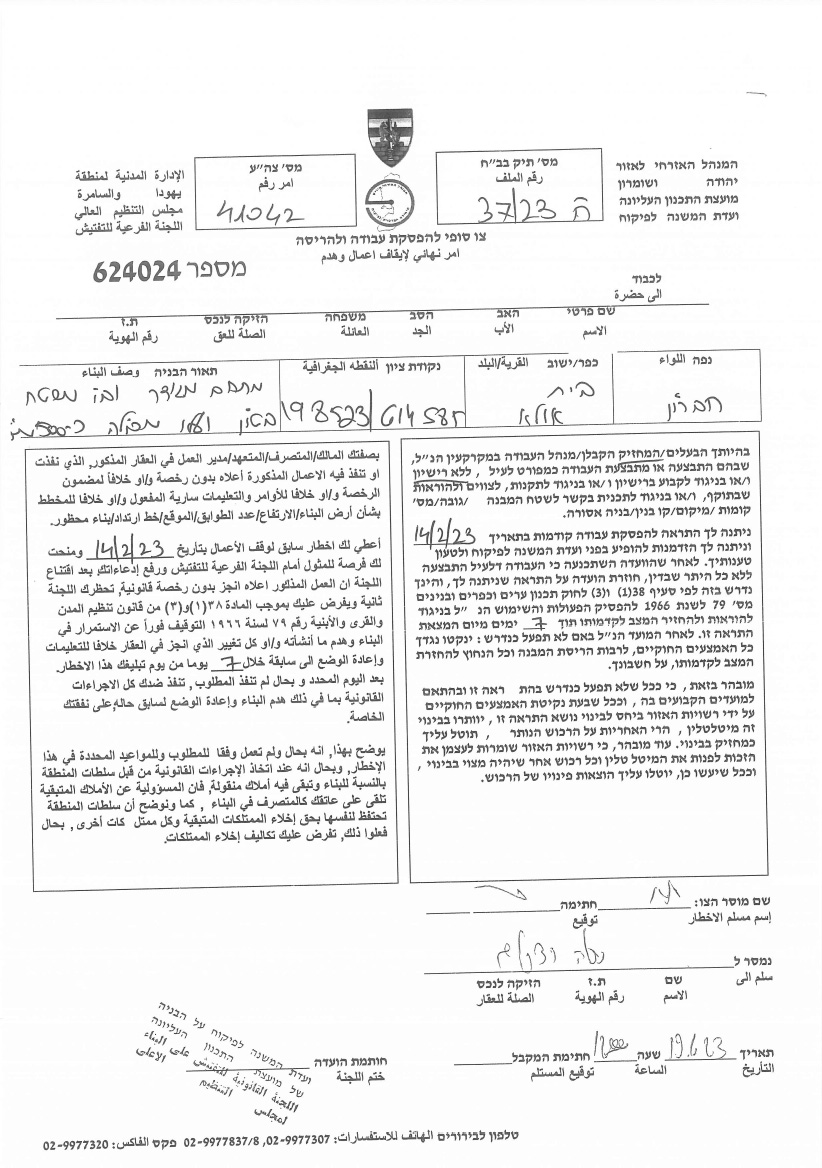 המנהל האזרחי לאזור
יהודה ושומרון
מועצת התכנון העליונה
ועדת המשנה לפיקוח
מס' תיק בב"ח
رقم الملف
ה 37/23
מס' צה"ע
امر رقم
41042
الإدارة المدنية لمنطقة
يهودا والسامرة
مجلس التنظيم العالي
اللجنة الفرعية للتفتيش
צו סופי להפסקת עבודה ולהריסה
امر نهائي لإيقاف اعمال وهدم
מספר 624024
לכבוד
الى حضرة
שם פרטי האב הסב משפחה הזיקה לנכס ת.ז
الاسم الأب الجد العائلة الصلة للعق رقم الهوية
נפה اللواء
חברון
כפר/ישוב القرية/البلد
בית
אולא
נקודת ציון ألنقطه الجغرافية
תאור הבניה وصف البناء
בהיותך הבעלים/המחזיק הקבלן/מנהל העבודה במקרקעין הנ"ל,
שבהם התבצעה או מתבצעת עבודה כמפורט לעיל , ללא רישיון
ו/או בניגוד לקבוע ברישיון ו /או בניגוד לתקנות, לצווים ולהוראות
שבתוקף, ו/או בניגוד לתכנית בקשר לשטח המבנה /גובה/מס'
קומות /מיקום/קו בנין/בניה אסורה.
ניתנה לך התראה להפסקת עבודה קודמות בתאריך 14/2/23
וניתנה לך הזדמנות להופיע בפני ועדת המשנה לפיקוח ולטעון
טענותיך. לאחר שהוועדה השתכנעה כי העבודה דלעיל התבצעה
ללא כל היתר שבדין, חוזרת הועדה על התראה שניתנה לך, והינך
נדרש בזה לפי סעיף 38(1) ו(3) לחוק תכנון ערים וכפרים ובנינים
מס' 79 לשנת 1966 להפסיק הפעולות והשימוש הנ "ל בניגוד
להוראות ולהחזיר המצב לקדמותו תוך 7 ימים מיום המצאת
התראה זו. לאחר המועד הנ"ל באם לא תפעל כנדרש : ינקטו נגדך
כל האמצעים החוקיים, לרבות הריסת המבנה וכל הנחוץ להחזרת
המצב לקדמותו, על חשבונך.
מובהר בזאת, כי ככל שלא תפעל כנדרש בהת ראה זו ובהתאם
למועדים הקבועים בה , וככל שבעת נקיטת האמצעים החוקיים
על ידי רשויות האזור ביחס לבינוי נושא התראה זו , יוותרו בבינוי
זה מיטלטלין, הרי האחריות על הרכוש הנותר , תוטל עליך
כמחזיק בבינוי. עוד מובהר, כי רשויות האזור שומרות לעצמן את
הזכות לפנות את המיטל טלין וכל רכוש אחר שיהיה מצוי בבינוי ,
וככל שיעשו כן, יוטלו עליך הוצאות פינויו של הרכוש.
بصفتك المالك/المتصرف/المتعهد/مدير العمل في العقار المذكور, الذي نفذت
او تنفذ فيه الاعمال المذكورة أعلاه بدون رخصة و/او خلافاً لمضمون
الرخصة و/او خلافا للأوامر والتعليمات سارية المفعول و/او خلافا للمخطط
بشأن أرض البناء/الارتفاع/عدد الطوابق/الموقع/خط ارتداد/بناء محظور.
أعطي لك اخطار سابق لوقف الأعمال بتأريخ 14/2/23 ومنحت
لك فرصة للمثول أمام اللجنة الفرعية للتفتيش ورفع إدعاءاتك, بعد اقتناع
اللجنة ان العمل المذكور اعلاه انجز بدون رخصة قانونية, تحظرك اللجنة
ثانية ويفرض عليك بموجب المادة ٣٨(١)و(٣) من قانون تنظيم المدن
والقرى والأبنية رقم ٧٩ لسنة ١٩٦٦ التوقيف فوراً عن الاستمرار في
البناء وهدم ما أنشأته و/او كل تغيير الذي انجز في العقار خلافا للتعليمات
وإعادة الوضع الى سابقة خلال 7 يوما من يوم تبليغك هذا الاخطار.
بعد اليوم المحدد و بحال لم تنفذ المطلوب , تنفذ ضدك كل الاجراءات
القانونية بما في ذلك هدم البناء وإعادة الوضع لسابق حاله, على نفقتك
الخاصة.
يوضح بهذا, انه بحال ولم تعمل وفقا للمطلوب وللمواعيد المحددة في هذا
الإخطار, وبحال انه عند اتخاذ الإجراءات القانونية من قبل سلطات المنطقة
بالنسبة للبناء وتبقى فيه أملاك منقولة, فان المسؤولية عن الأملاك المتبقية
تلقى على عاتقك كالمتصرف في البناء , كما ونوضح أن سلطات المنطقة
تحتفظ لنفسها بحق إخلاء الممتلكات المتبقية وكل ممتل كات أخرى, بحال
فعلوا ذلك, تفرض عليك تكاليف إخلاء الممتلكات.
שם מוסר הצו: חתימה
إسم مسلم الاخطار توقيع
נמסר ל
سلم الى
שם ת.ז הזיקה לנכס
الاسم رقم الهوية الصلة للعقار
תאריך 19.6.23 שעה חתימת המקבל
التأريخ الساعة توقيع المستلم
חותמת הועדה
ختم اللجنة
ועדת המשנה לפיקוח על הבניה
של מועצת התכנון העליונה
اللجنة القانونية للتفتيش على البناء
لمجلس التنظيم الاعلى
טלפון לבירורים الهاتف للاستفسارات: 02-9977307, 02-9977837/8 פקס الفاكس: 02-9977320